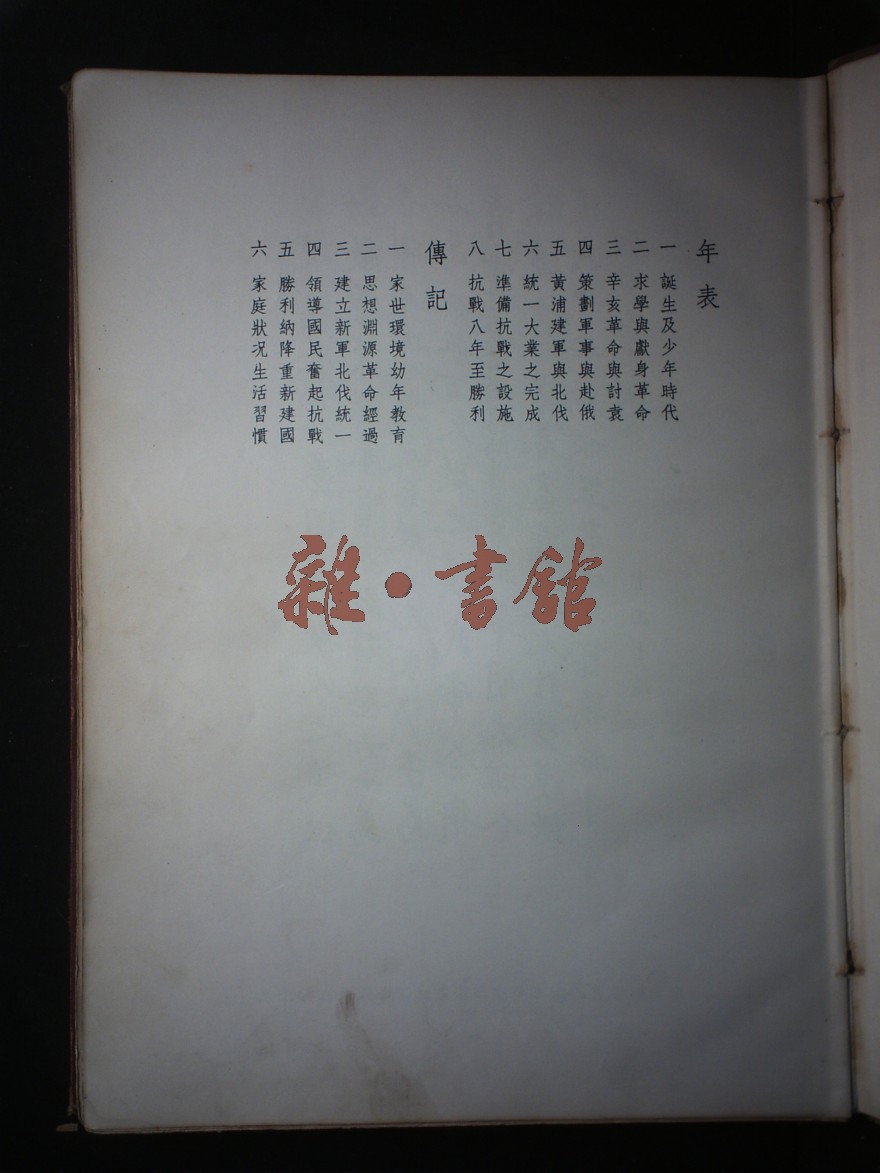 年表
一 誕生及少年時代
二 求學與獻身革命
三 辛亥革命與討袁
四 策劃軍事與赴俄
五 黃浦建軍與北伐
六 統一大業之完成
七 準備抗戰之設施
八 抗戰八年至勝利
傳記
一 家世環境幼年教育
二 思想淵源革命經過
三 建立新軍北伐統一
四 領導國民奮起抗戰
五 勝利納降重新建國
六 家庭狀況生活習慣
雜·書館